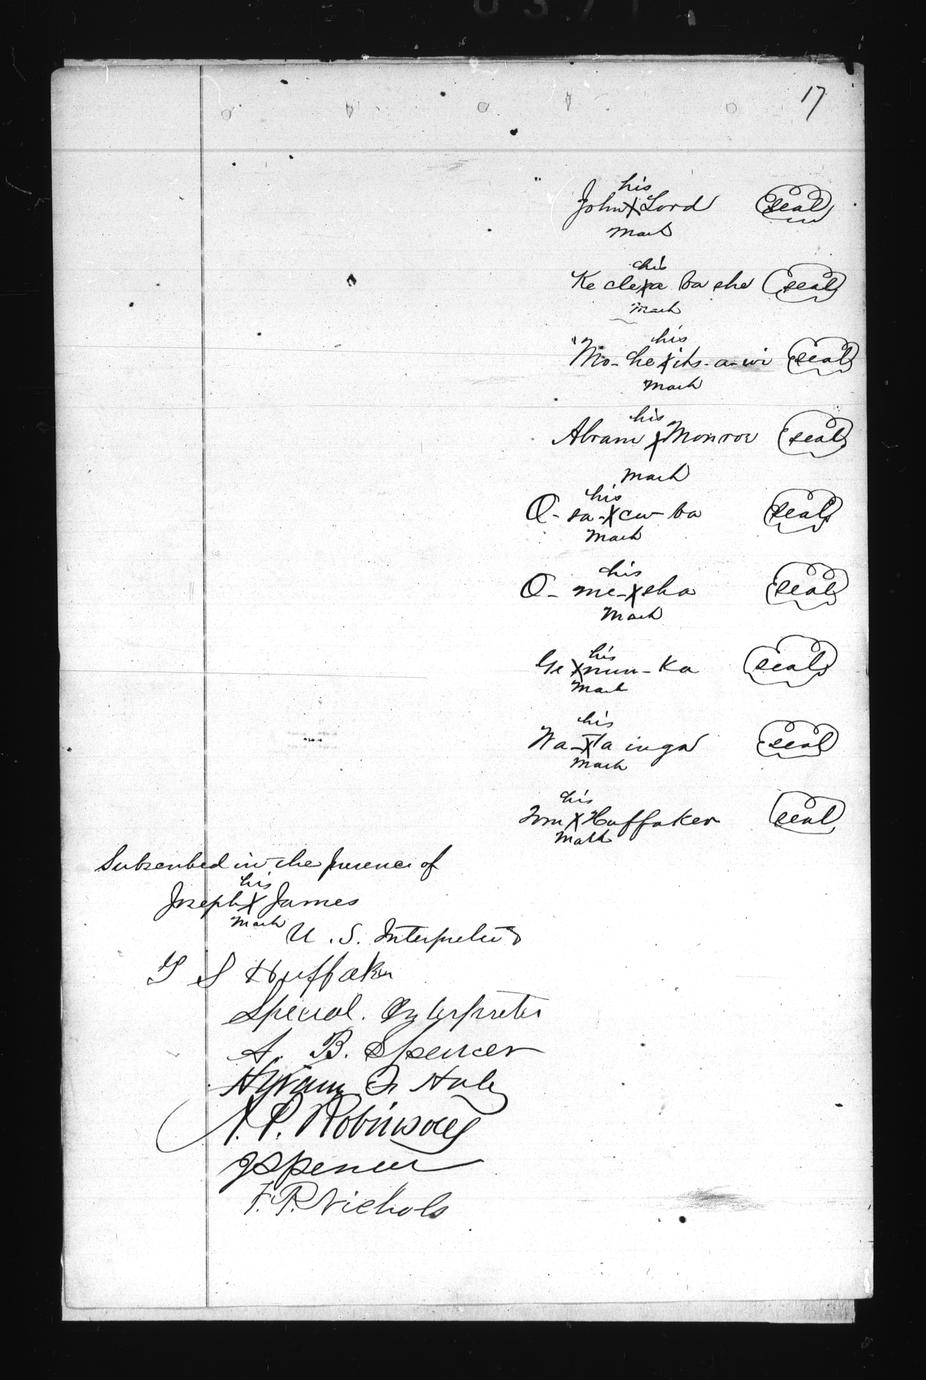 17
his
John X Lord seal
mark
his
Ke cle X a ba she seal
mark
his
Mo-he X its-a-wi seal
mark
his
Abram X Monroe seal
mark
his
O-sa-X cu-ba seal
mark
his
O-me-X sha seal
mark
his
Ge X nun-Ka seal
mark
his
Wa-X Ta inga seal
mark
his
Tom X Huffaker seal
mark
Subscribed in the presence of
his
Joseph X James
mark
U.S. Interpreter
T S Huffaker
Special. Interpreter
A. B. Spencer
Hyram
A. P. Robinson
J Spencer
F. P. Nichols